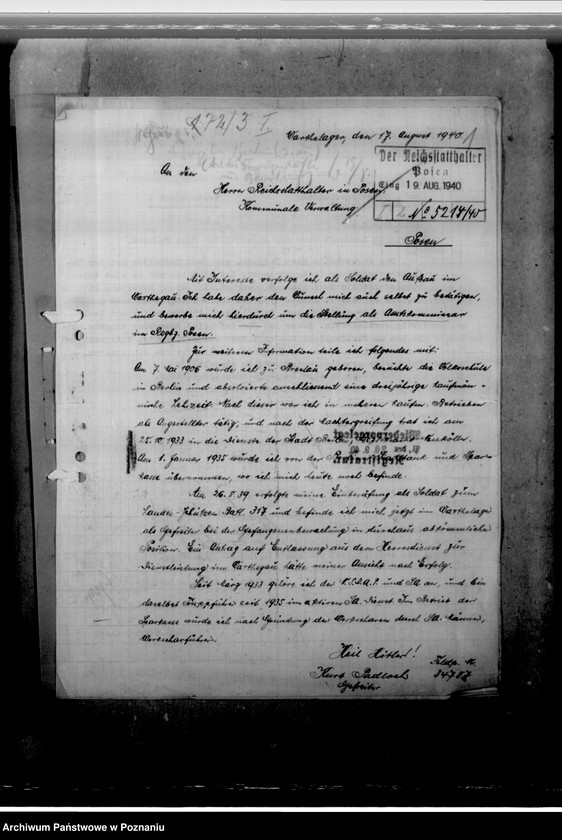 172/3 I
Warthelager, den 17. August 1940.
Der Reichsstatthalter
Posen
Eing 19. AUG. 1940
I/2 No 5214/40
An den
Herrn Reichsstatthalter in Posen
Kommunale Verwaltung
Posen
Mit Interesse verfolge ich als Soldat den Aufbau im
Warthegau. Ich habe daher den Wunsch mich auch selbst zu betätigen,
und bewerbe mich hierdurch um die Stellung als Amtskommissar
im Regbz. Posen.
Zur weiteren Information teile ich folgendes mit:
Am 7. Mai 1906 wurde ich zu Breslau geboren, besuchte die Volksschule
in Berlin und absolvierte anschliessend eine dreijährige kaufmän-
nische Lehrzeit. Nach dieser war ich in mehreren kaufm. Betrieben
als Angestellter tätig, und nach der Machtergreifung trat ich am
25.10.1933 in die Dienste der Stadt Berlin, Neukölln.
Am 1. Januar 1935 wurde ich von der Stadtbank und Spar-
kasse übernommen, wo ich mich heute noch befinde.
Am 26.8.39 erfolgte meine Einberufung als Soldat zum
Landes-Schützen Batl. 317 und befinde ich mich jetzt im Warthelager
als Gefreiter bei der Gefangenenbewachung in durchaus abkömmlicher
Position. Ein Antrag auf Entlassung aus dem Heeresdienst zur
Dienstleistung im Warthegau hätte meiner Ansicht nach Erfolg.
Seit März 1933 gehöre ich der N.S.D.A.P. und SA an, und bin
daselbst Truppführer seit 1935 im aktiven SA. Dienst. Im Betrieb der
Sparkasse wurde ich nach Gründung der Werkscharen durch SA. Männer,
Werkscharführer.
Heil Hitler!
Kurt Padloch
Gefreiter
Feldp. N.
34787
Archiwum Państwowe w Poznaniu